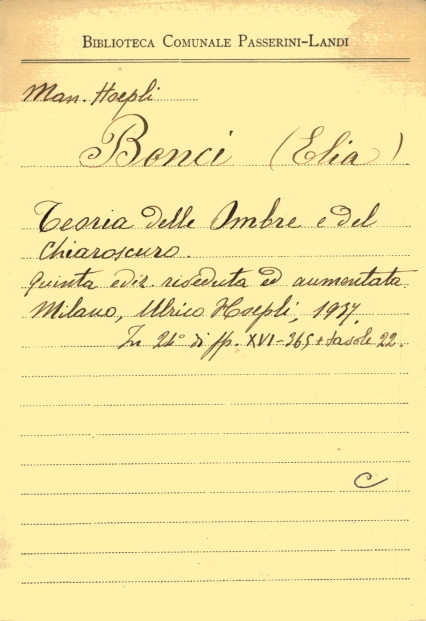 BIBLIOTECA COMUNALE PASSERINI-LANDI
Man. Hoepli
Bonci (Elia)
Teoria delle Ombre e del
Chiaroscuro.
Quinta ediz. riveduta ed aumentata
Milano, Ulrico Hoepli, 1937.
In 24° di pp. XVI-365 + tavole 22.
C